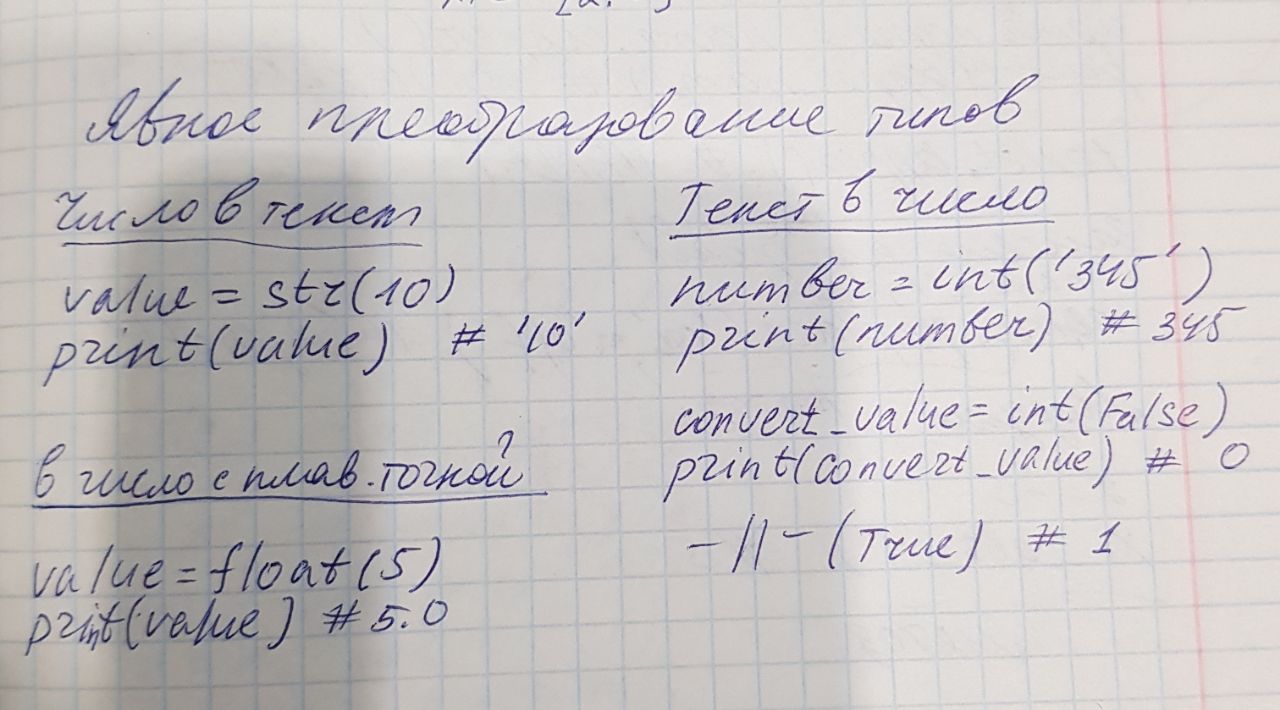 Явное преобразование типов
Число в текст
value = str(10)
print(value) # '10'
в число с плав. точкой
value = float(5)
print(value) # 5.0
Текст в число
number = int('345')
print(number) # 345
convert_value = int(False)
print(convert_value) # 0
-||- (True) # 1